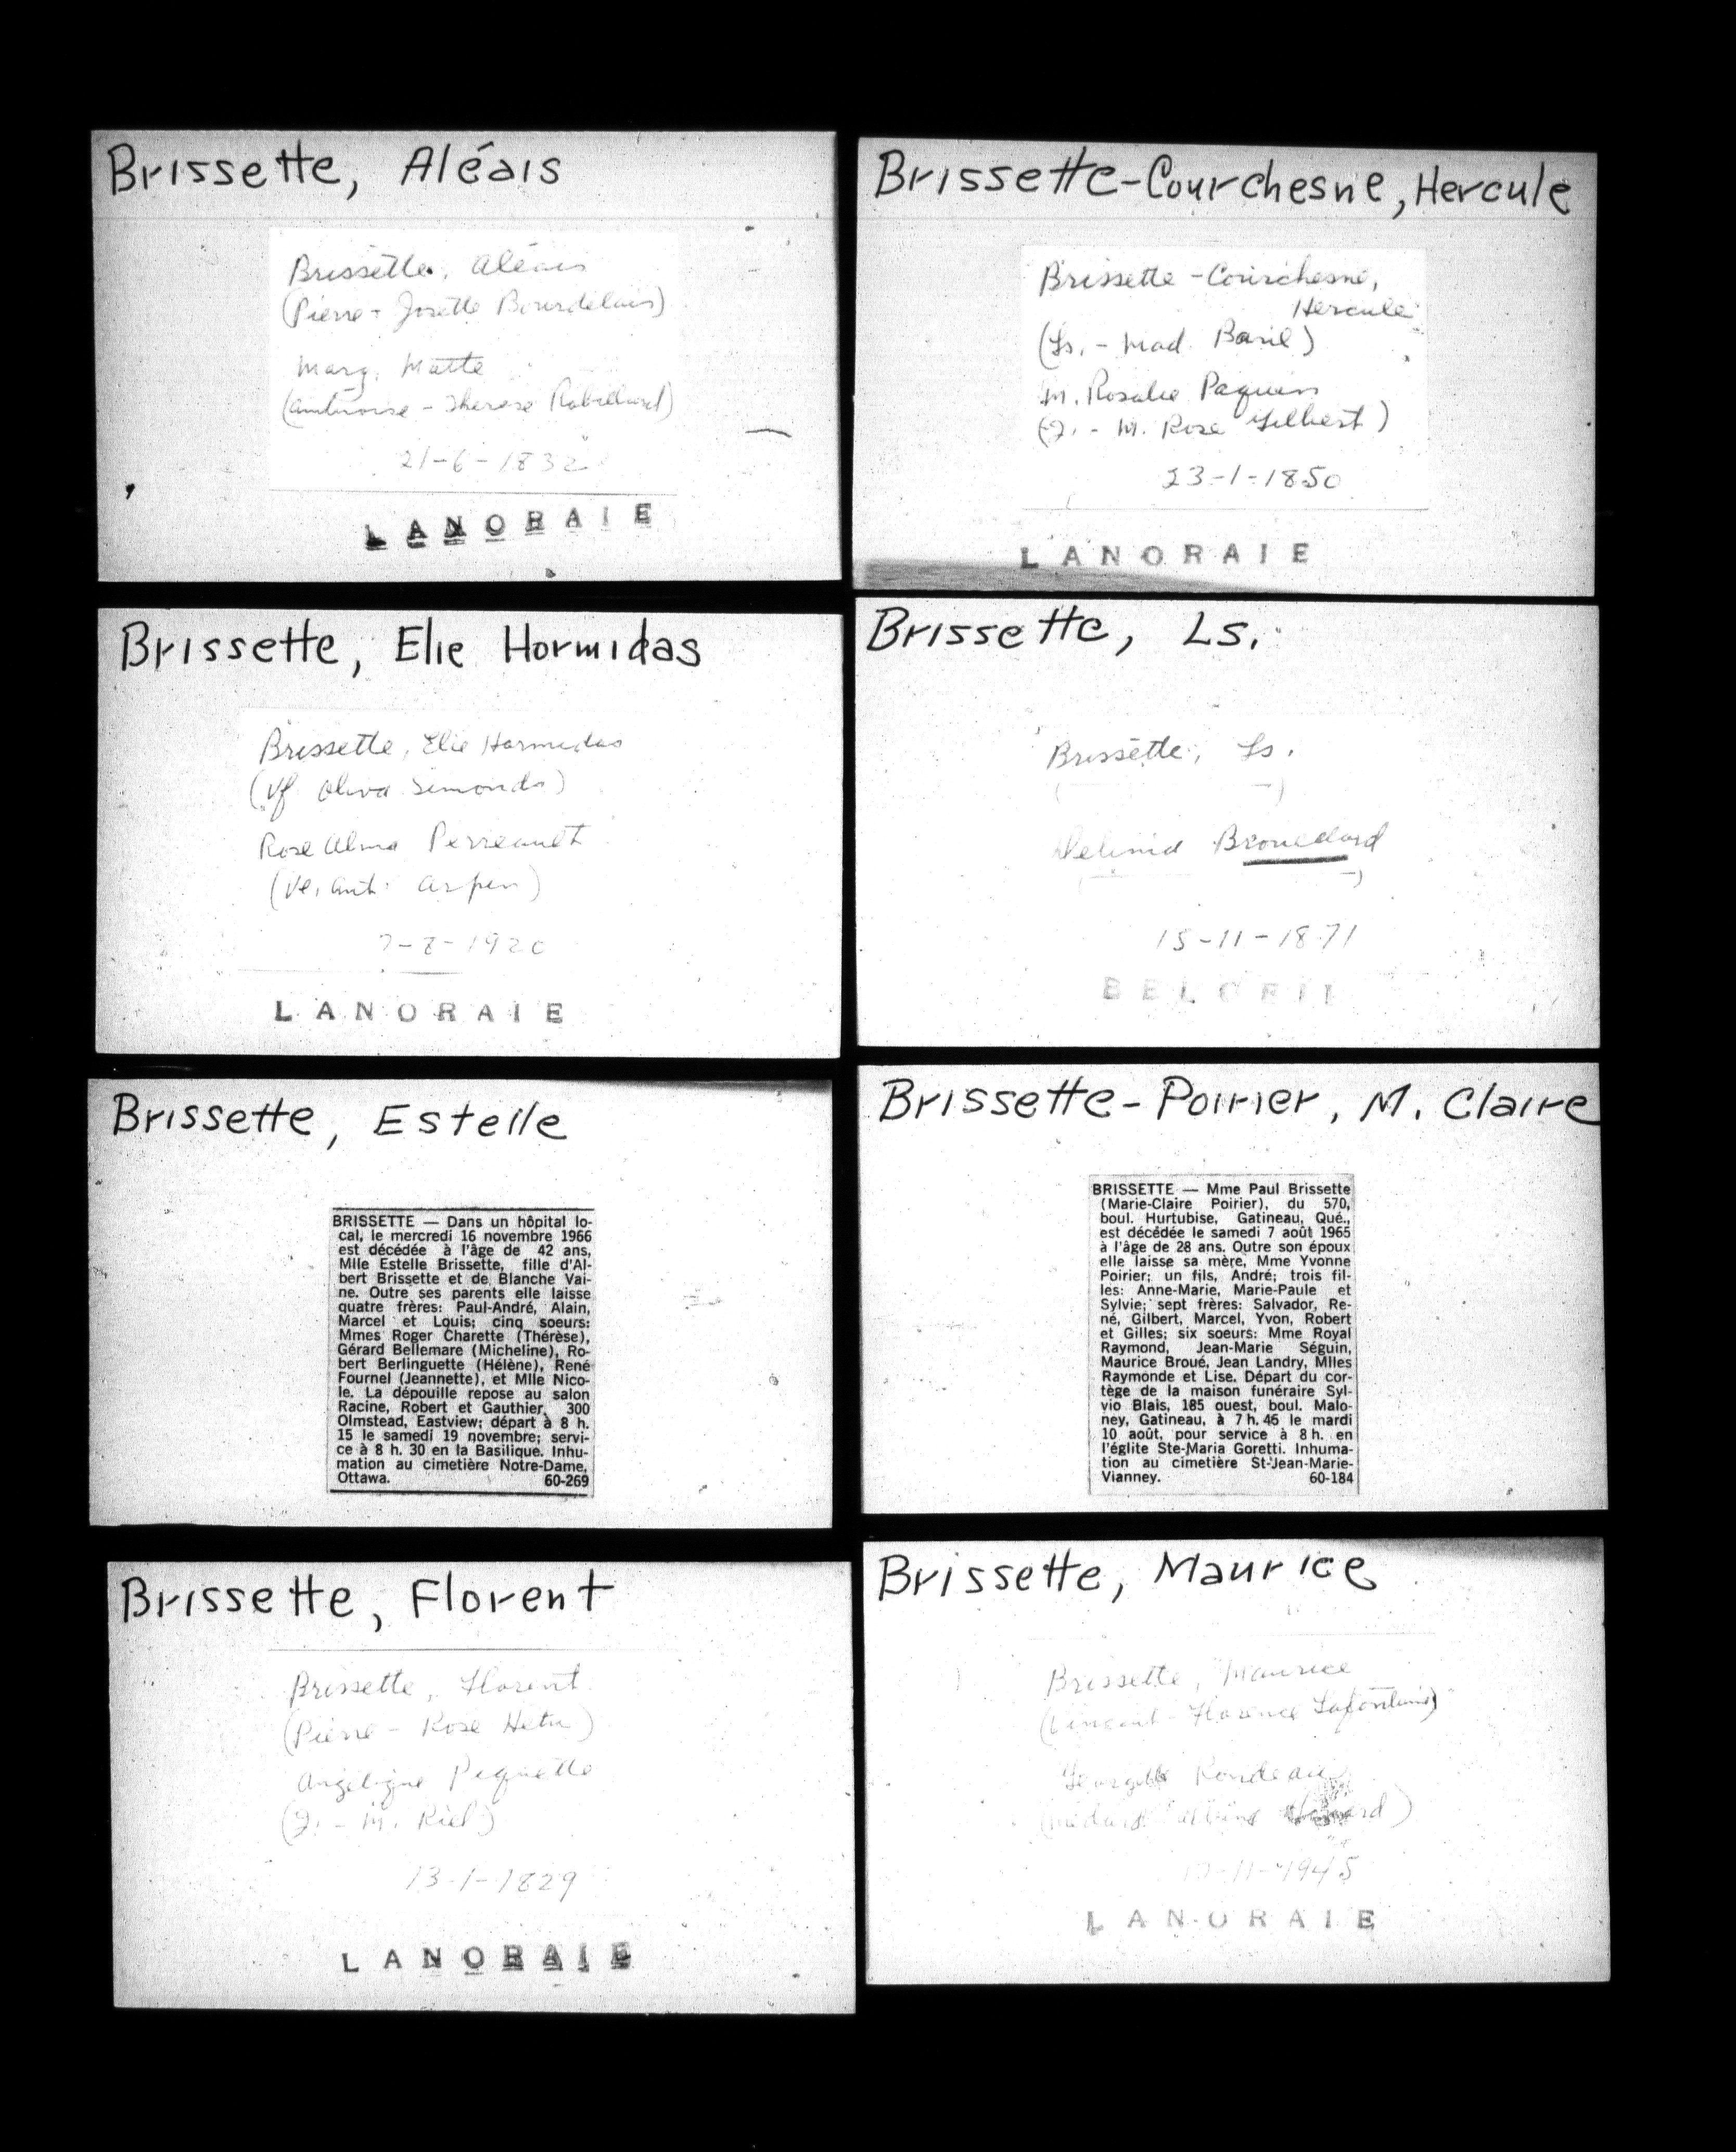 Brissette, Aléais
Brissette, Aléais
(Pierre - Josette Bourdelais)
Marg. Matte
(Ambroise - Therese Robillard)
21-6-1832
LANORAIE
Brissette, Elie Hormidas
Brissette, Elie Hormidas
(Vf Oliva Simonds)
Rose Alma Perreault
(Ve. Ant. Arpin)
1920
LANORAIE
Brissette, Estelle
BRISSETTE — Dans un hôpital lo-
cal, le mercredi 16 novembre 1966
est décédée à l'âge de 42 ans,
Mlle Estelle Brissette, fille d'Al-
bert Brissette et de Blanche Vai-
ne. Outre ses parents elle laisse
quatre frères: Paul-André, Alain,
Marcel et Louis; cinq soeurs:
Mmes Roger Charette (Thérèse),
Gérard Bellemare (Micheline), Ro-
bert Berlinguette (Hélène), René
Fournel (Jeannette), et Mlle Nico-
le. La dépouille repose au salon
Racine, Robert et Gauthier, 300
Olmstead, Eastview; départ à 8 h.
15 le samedi 19 novembre; servi-
ce à 8 h. 30 en la Basilique. Inhu-
mation au cimetière Notre-Dame,
Ottawa. 60-269
Brissette, Florent
Brissette, Florent
(Pierre - Rose Hetu)
Angelique Piquette
(J. - M. Riel)
13-1-1829
LANORAIE
Brissette-Courchesne, Hercule
Brissette-Courchesne,
Hercule
(Ls. - Mad. Basil)
M. Rosalie Paquin
(J. - M. Rose Gilbert)
23-1-1850
LANORAIE
Brissette, Ls.
Brissette, Ls.
( — )
Delima Brouillard
( — )
15-11-1871
BELOEIL
Brissette-Poirier, M. Claire
BRISSETTE — Mme Paul Brissette
(Marie-Claire Poirier), du 570,
boul. Hurtubise, Gatineau, Qué.,
est décédée le samedi 7 août 1965
à l'âge de 28 ans. Outre son époux
elle laisse sa mère, Mme Yvonne
Poirier; un fils, André; trois fil-
les: Anne-Marie, Marie-Paule et
Sylvie; sept frères: Salvador, Re-
né, Gilbert, Marcel, Yvon, Robert
et Gilles; six soeurs: Mme Royal
Raymond, Jean-Marie Séguin,
Maurice Broué, Jean Landry, Mlles
Raymonde et Lise. Départ du cor-
tège de la maison funéraire Syl-
vio Blais, 185 ouest, boul. Malo-
ney, Gatineau, à 7 h. 45 le mardi
10 août, pour service à 8 h. en
l'église Ste-Maria Goretti. Inhuma-
tion au cimetière St-Jean-Marie-
Vianney. 60-184
Brissette, Maurice
Brissette, Maurice
(Vincent - Florence Lafontaine)
Georgette Rondeau
LANORAIE